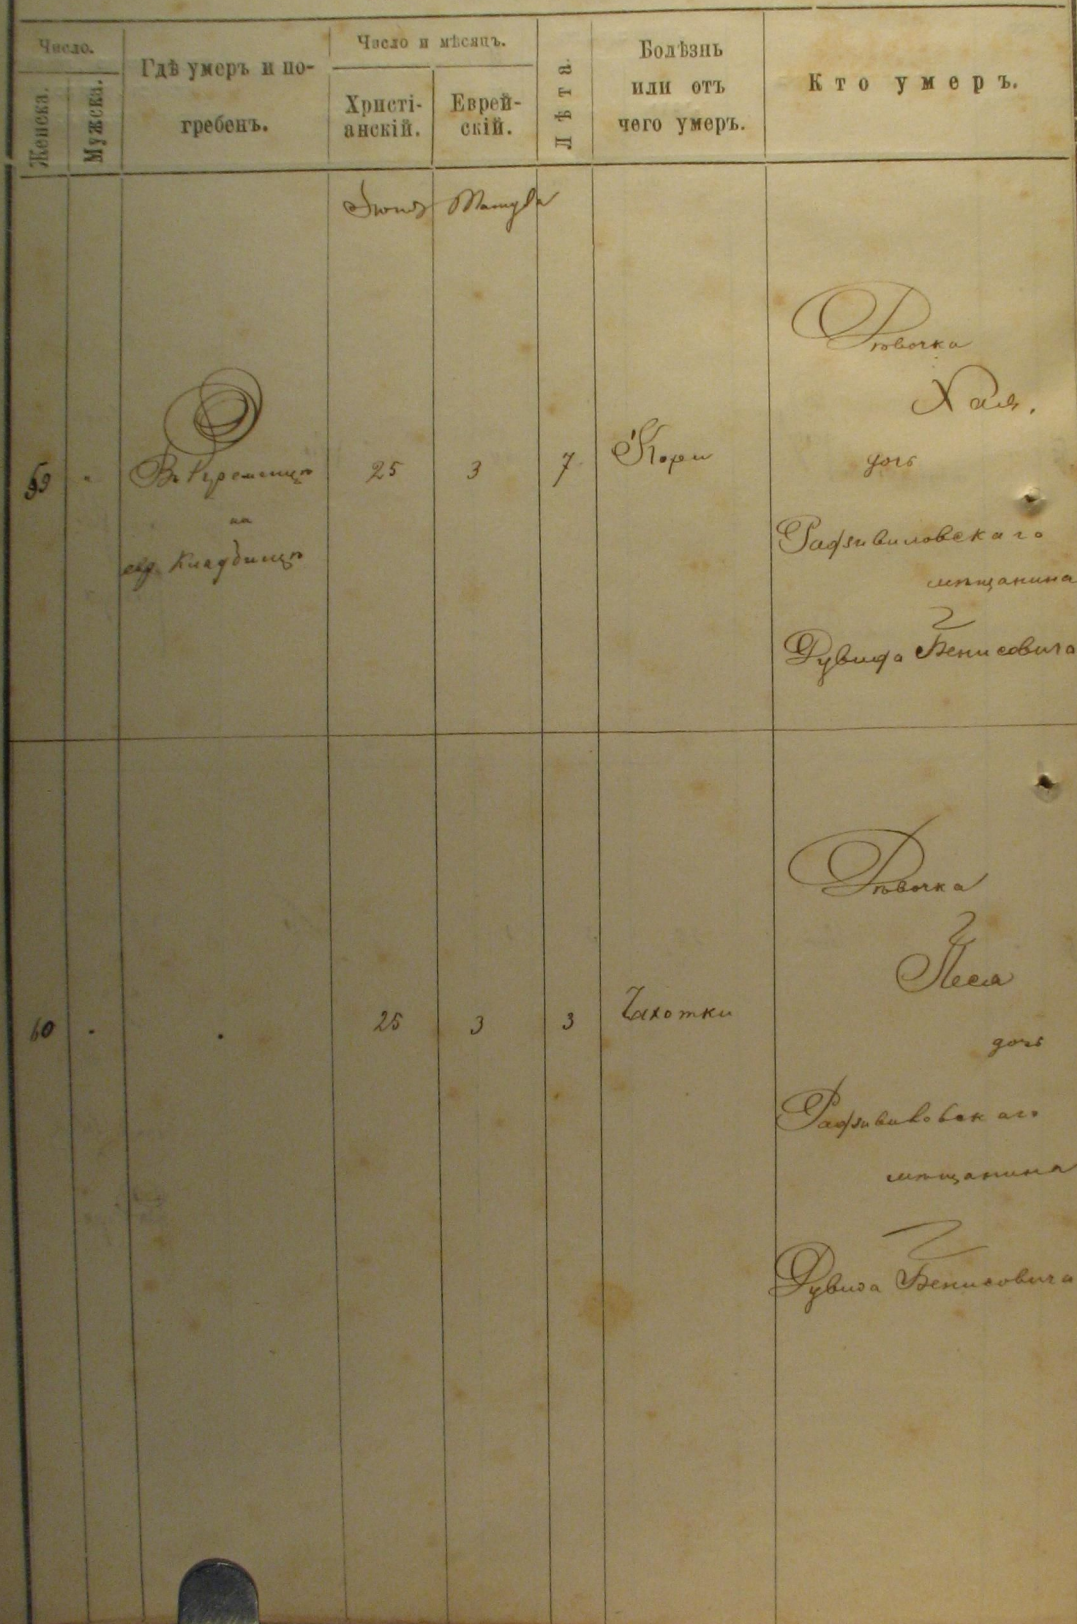 Число.
Женска.
Мужска.
Гдѣ умеръ и по-
гребенъ.
Число и мѣсяцъ.
Христі-
анскій.
Еврей-
скій.
Лѣта.
Болѣзнь
или отъ
чего умеръ.
Кто умеръ.
59
Въ Кременцѣ
на
евр. Кладбищѣ
25
3
7
Кори
Дѣвочка
Хая,
дочь
Радзивиловскаго
мѣщанина
Дувида Бенисовича
60
25
3
3
Чахотки
Дѣвочка
Песя
дочь
Радзивиловскаго
мѣщанина
Дувида Бенисовича